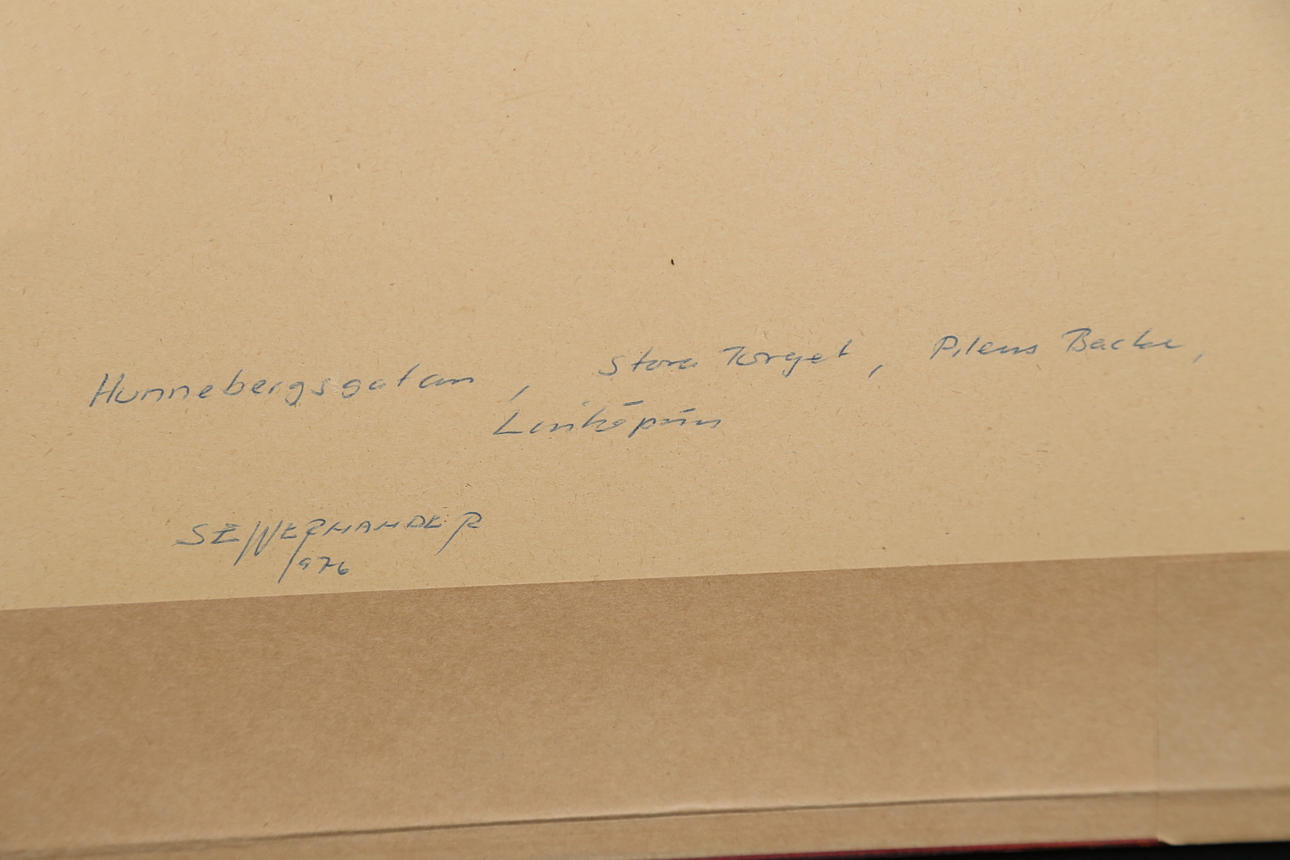 Hunnebergsgatan, Stora Torget, Pilens Backe,
Linköping
SE WERNANDER
1976